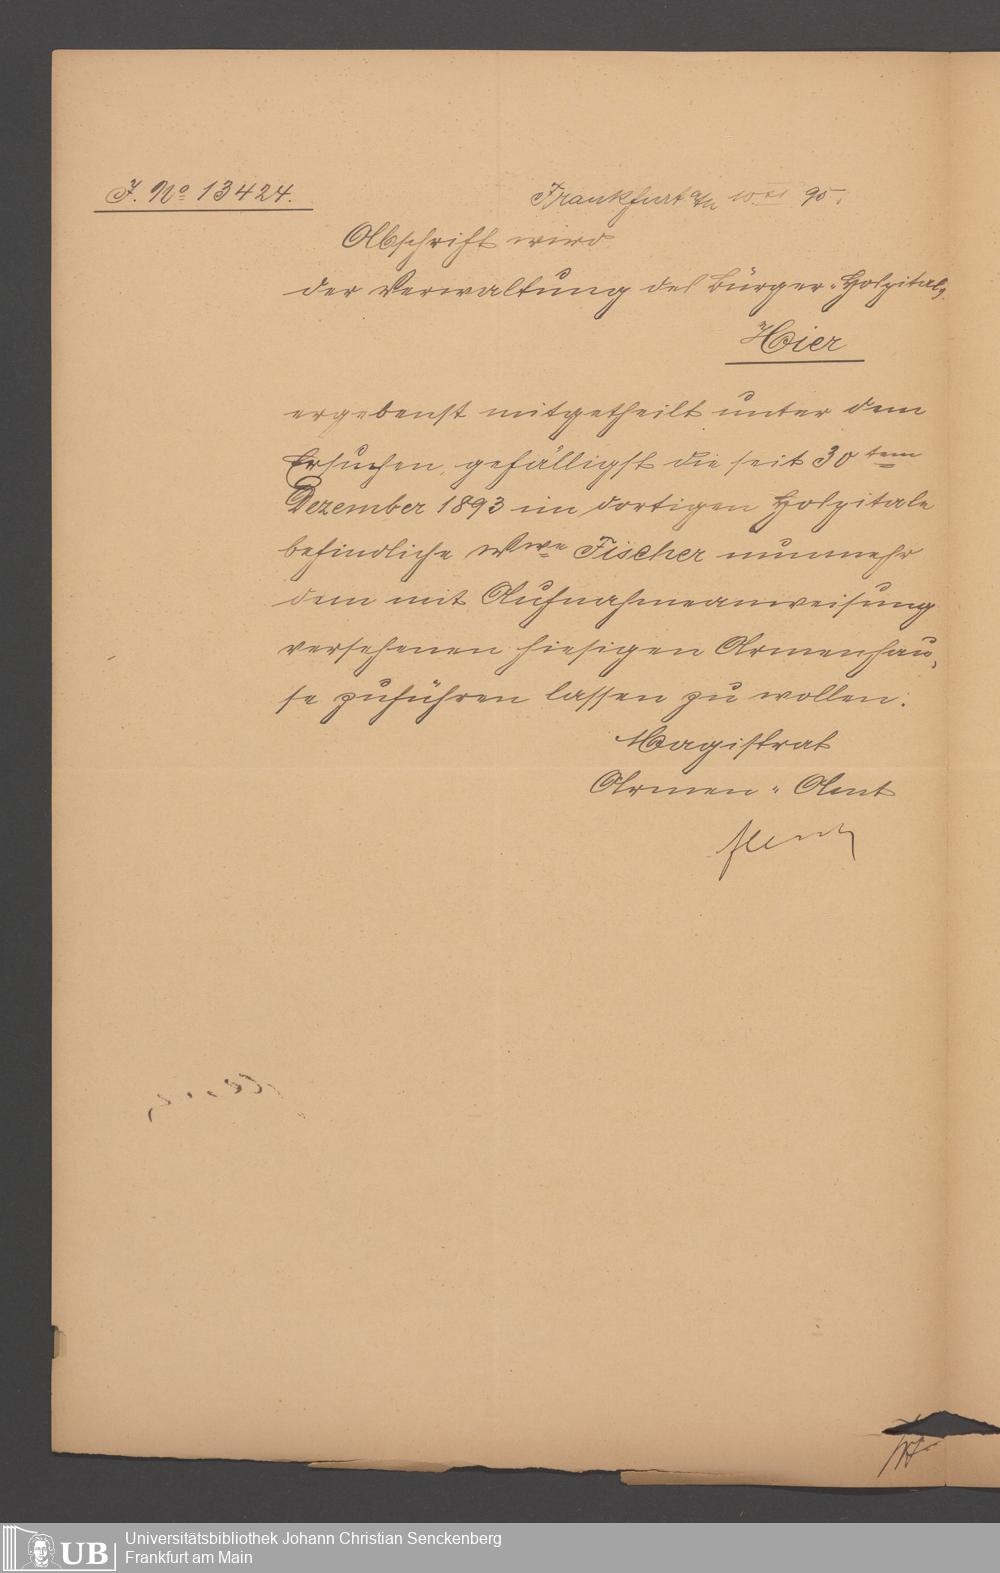 J. No 13424.
Frankfurt a/M 10. XI 95.
Abschrift wird
der Verwaltung des Bürger-Hospitals
Hier
ergebenst mitgetheilt unter dem
Ersuchen, gefälligst die seit 30tem
Dezember 1893 im dortigen Hospitale
befindliche Wwe Fischer nunmehr
dem mit Aufnahmeanweisung
versehenen hiesigen Armenhau-
se zuführen lassen zu wollen.
Magistrat
Armen-Amt
UB
Universitätsbibliothek Johann Christian Senckenberg
Frankfurt am Main